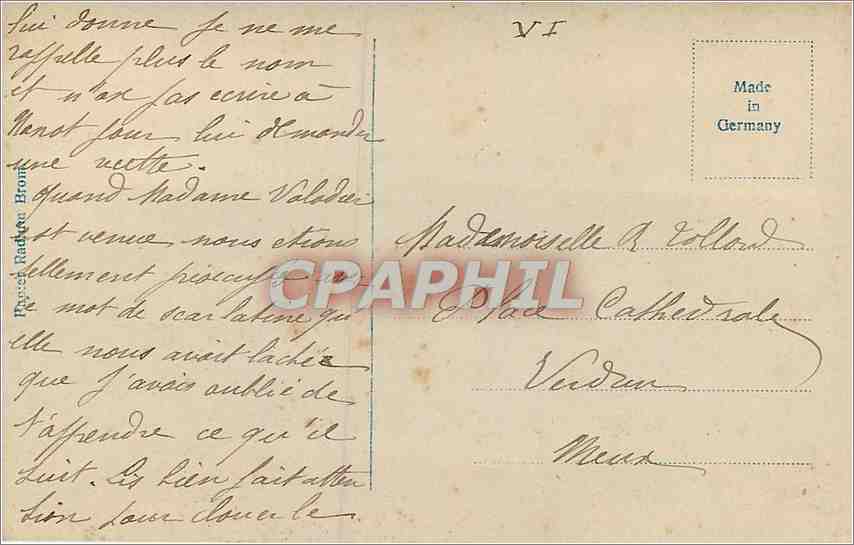 lui donne je ne me
rappelle plus le nom
et n'ose pas écrire à
Nanot pour lui demander
une veste.
Quand Madame Valadier
est venue nous étions
tellement
ce mot de scarlatine qu
elle nous avait lachée
que j'avais oublié de
t'apprendre ce qu'il
suit. As bien fait atten
tion pour clouer le
VI
Made
in
Germany
Mademoiselle R Tolland
Place Cathédrale
Verdun
Meuse
CPAPHIL
Radium Brom